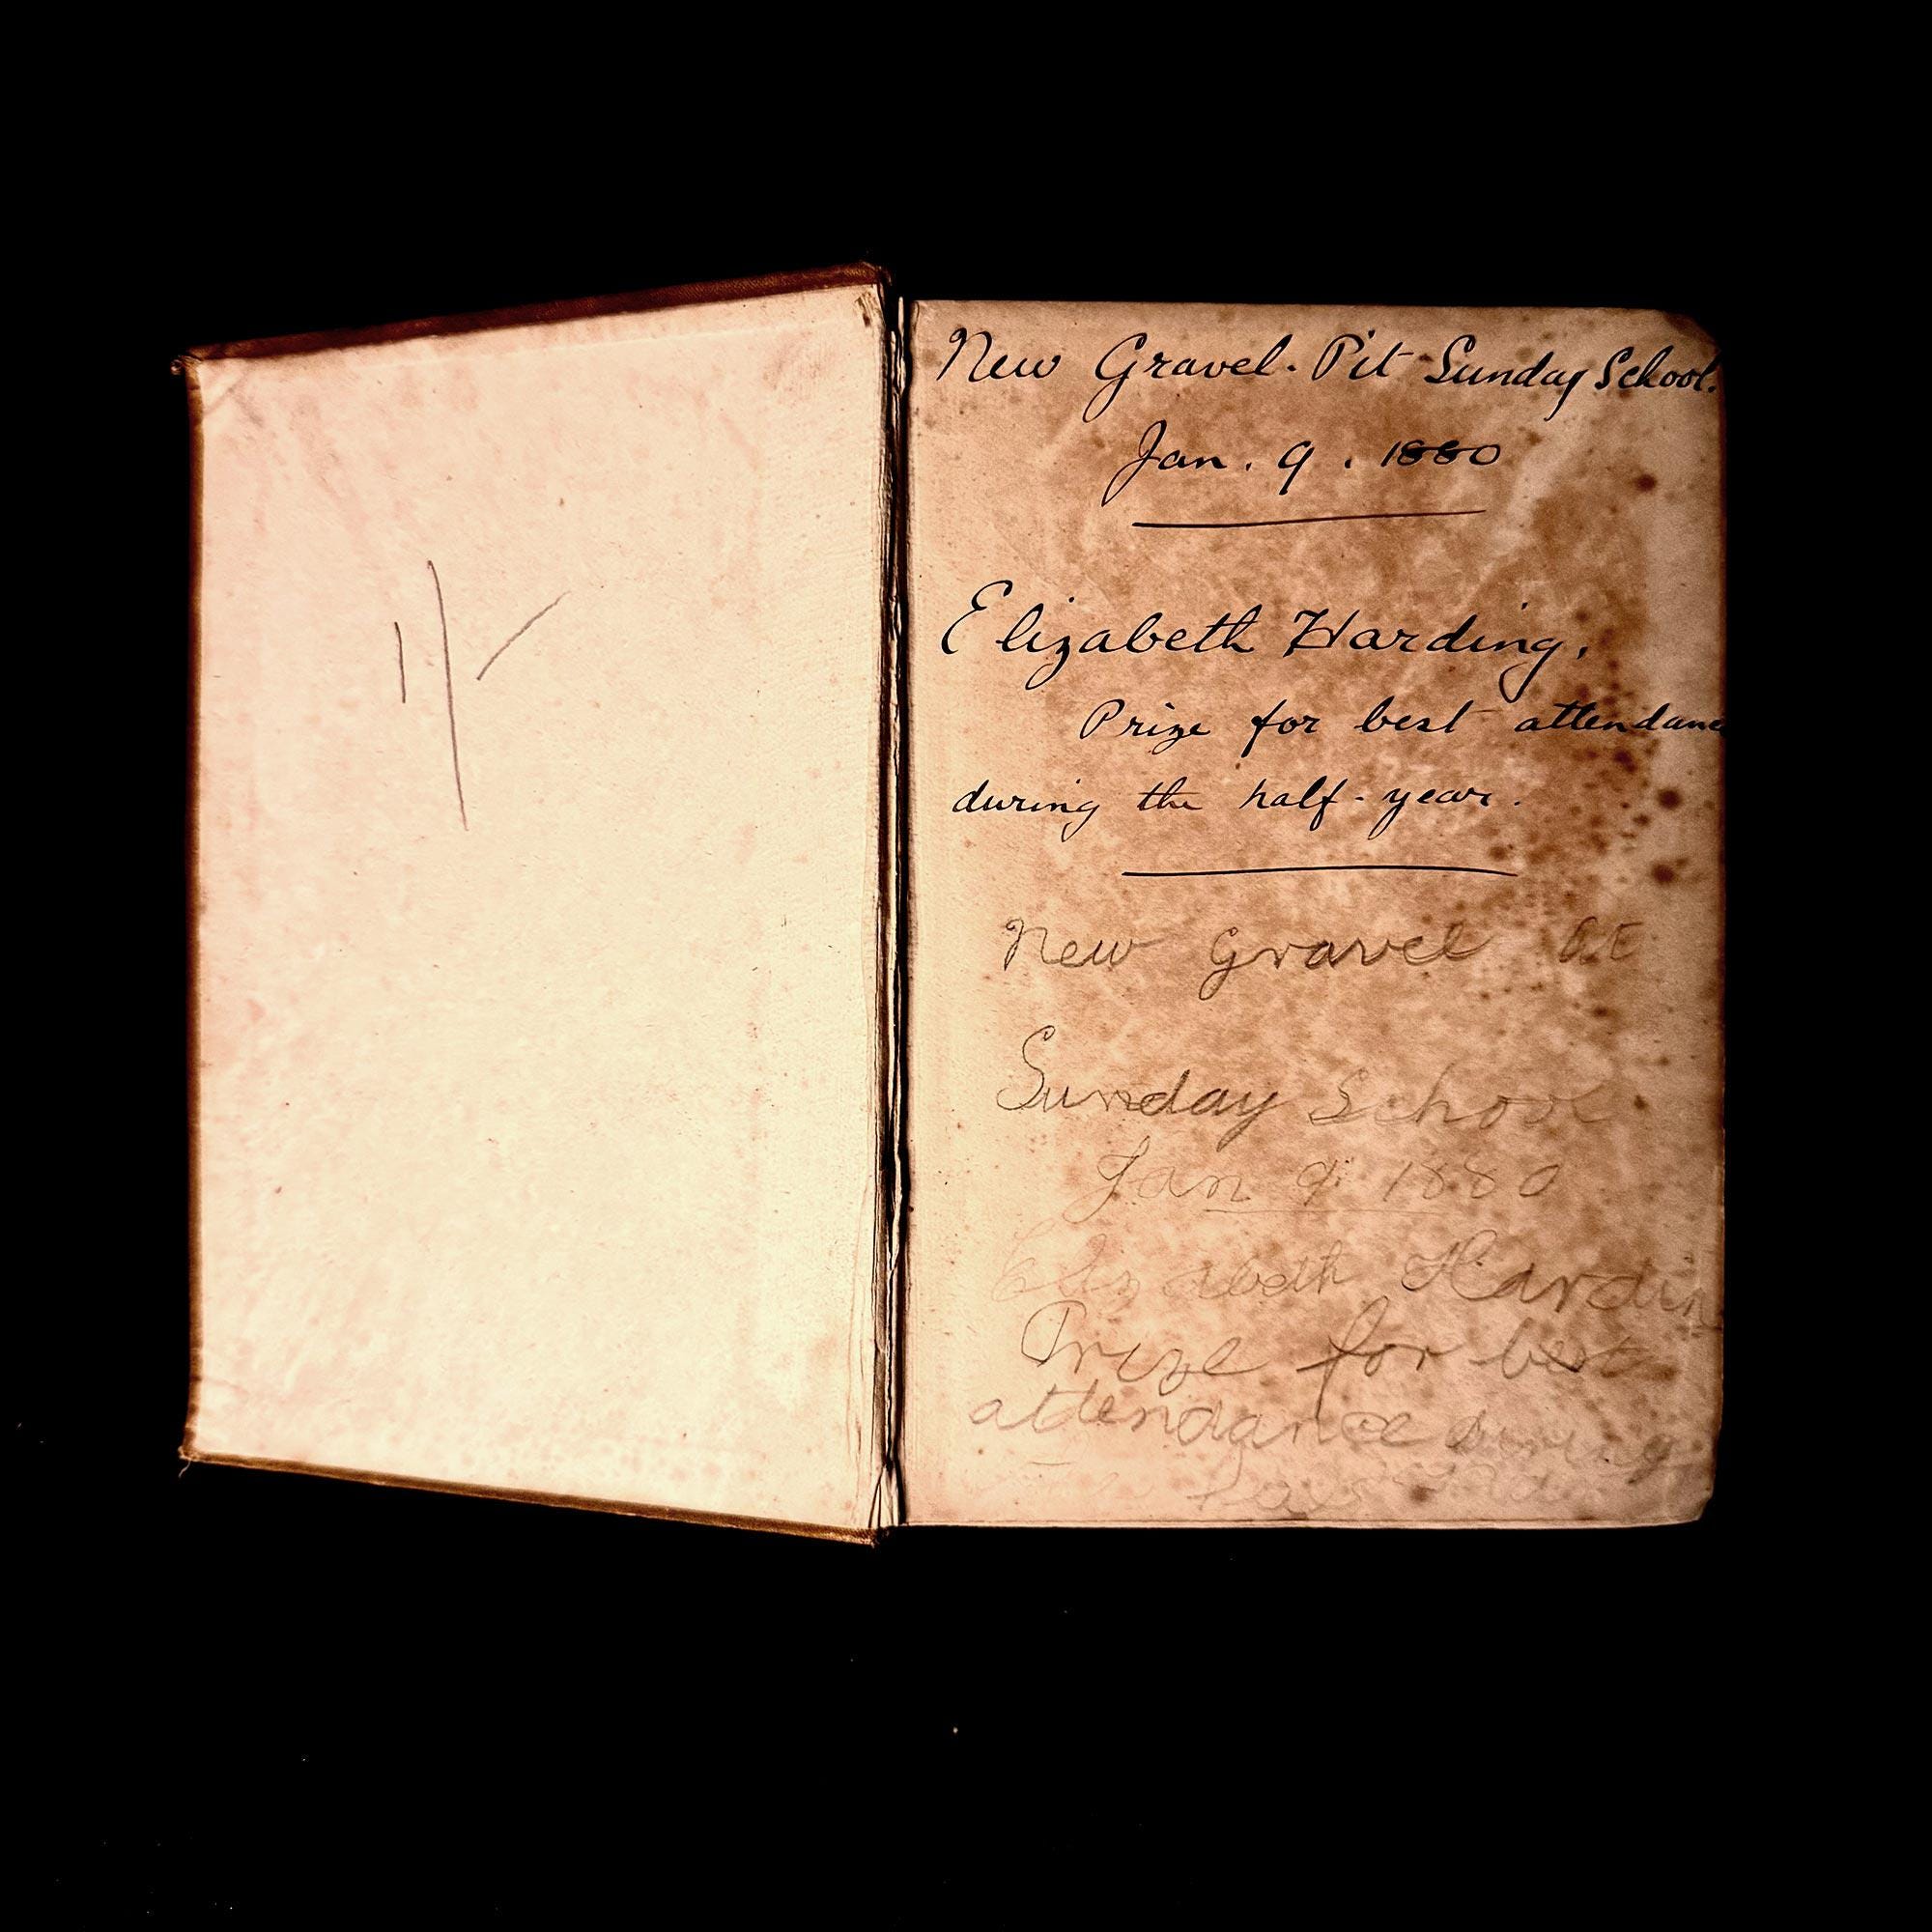 1/-
New Gravel-Pit Sunday School.
Jan. 9. 1880
Elizabeth Harding.
Prize for best attendance
during the half-year.
New Gravel
Sunday School
Jan 9 1880
Elizabeth Hardin
Prize for best
attendance during